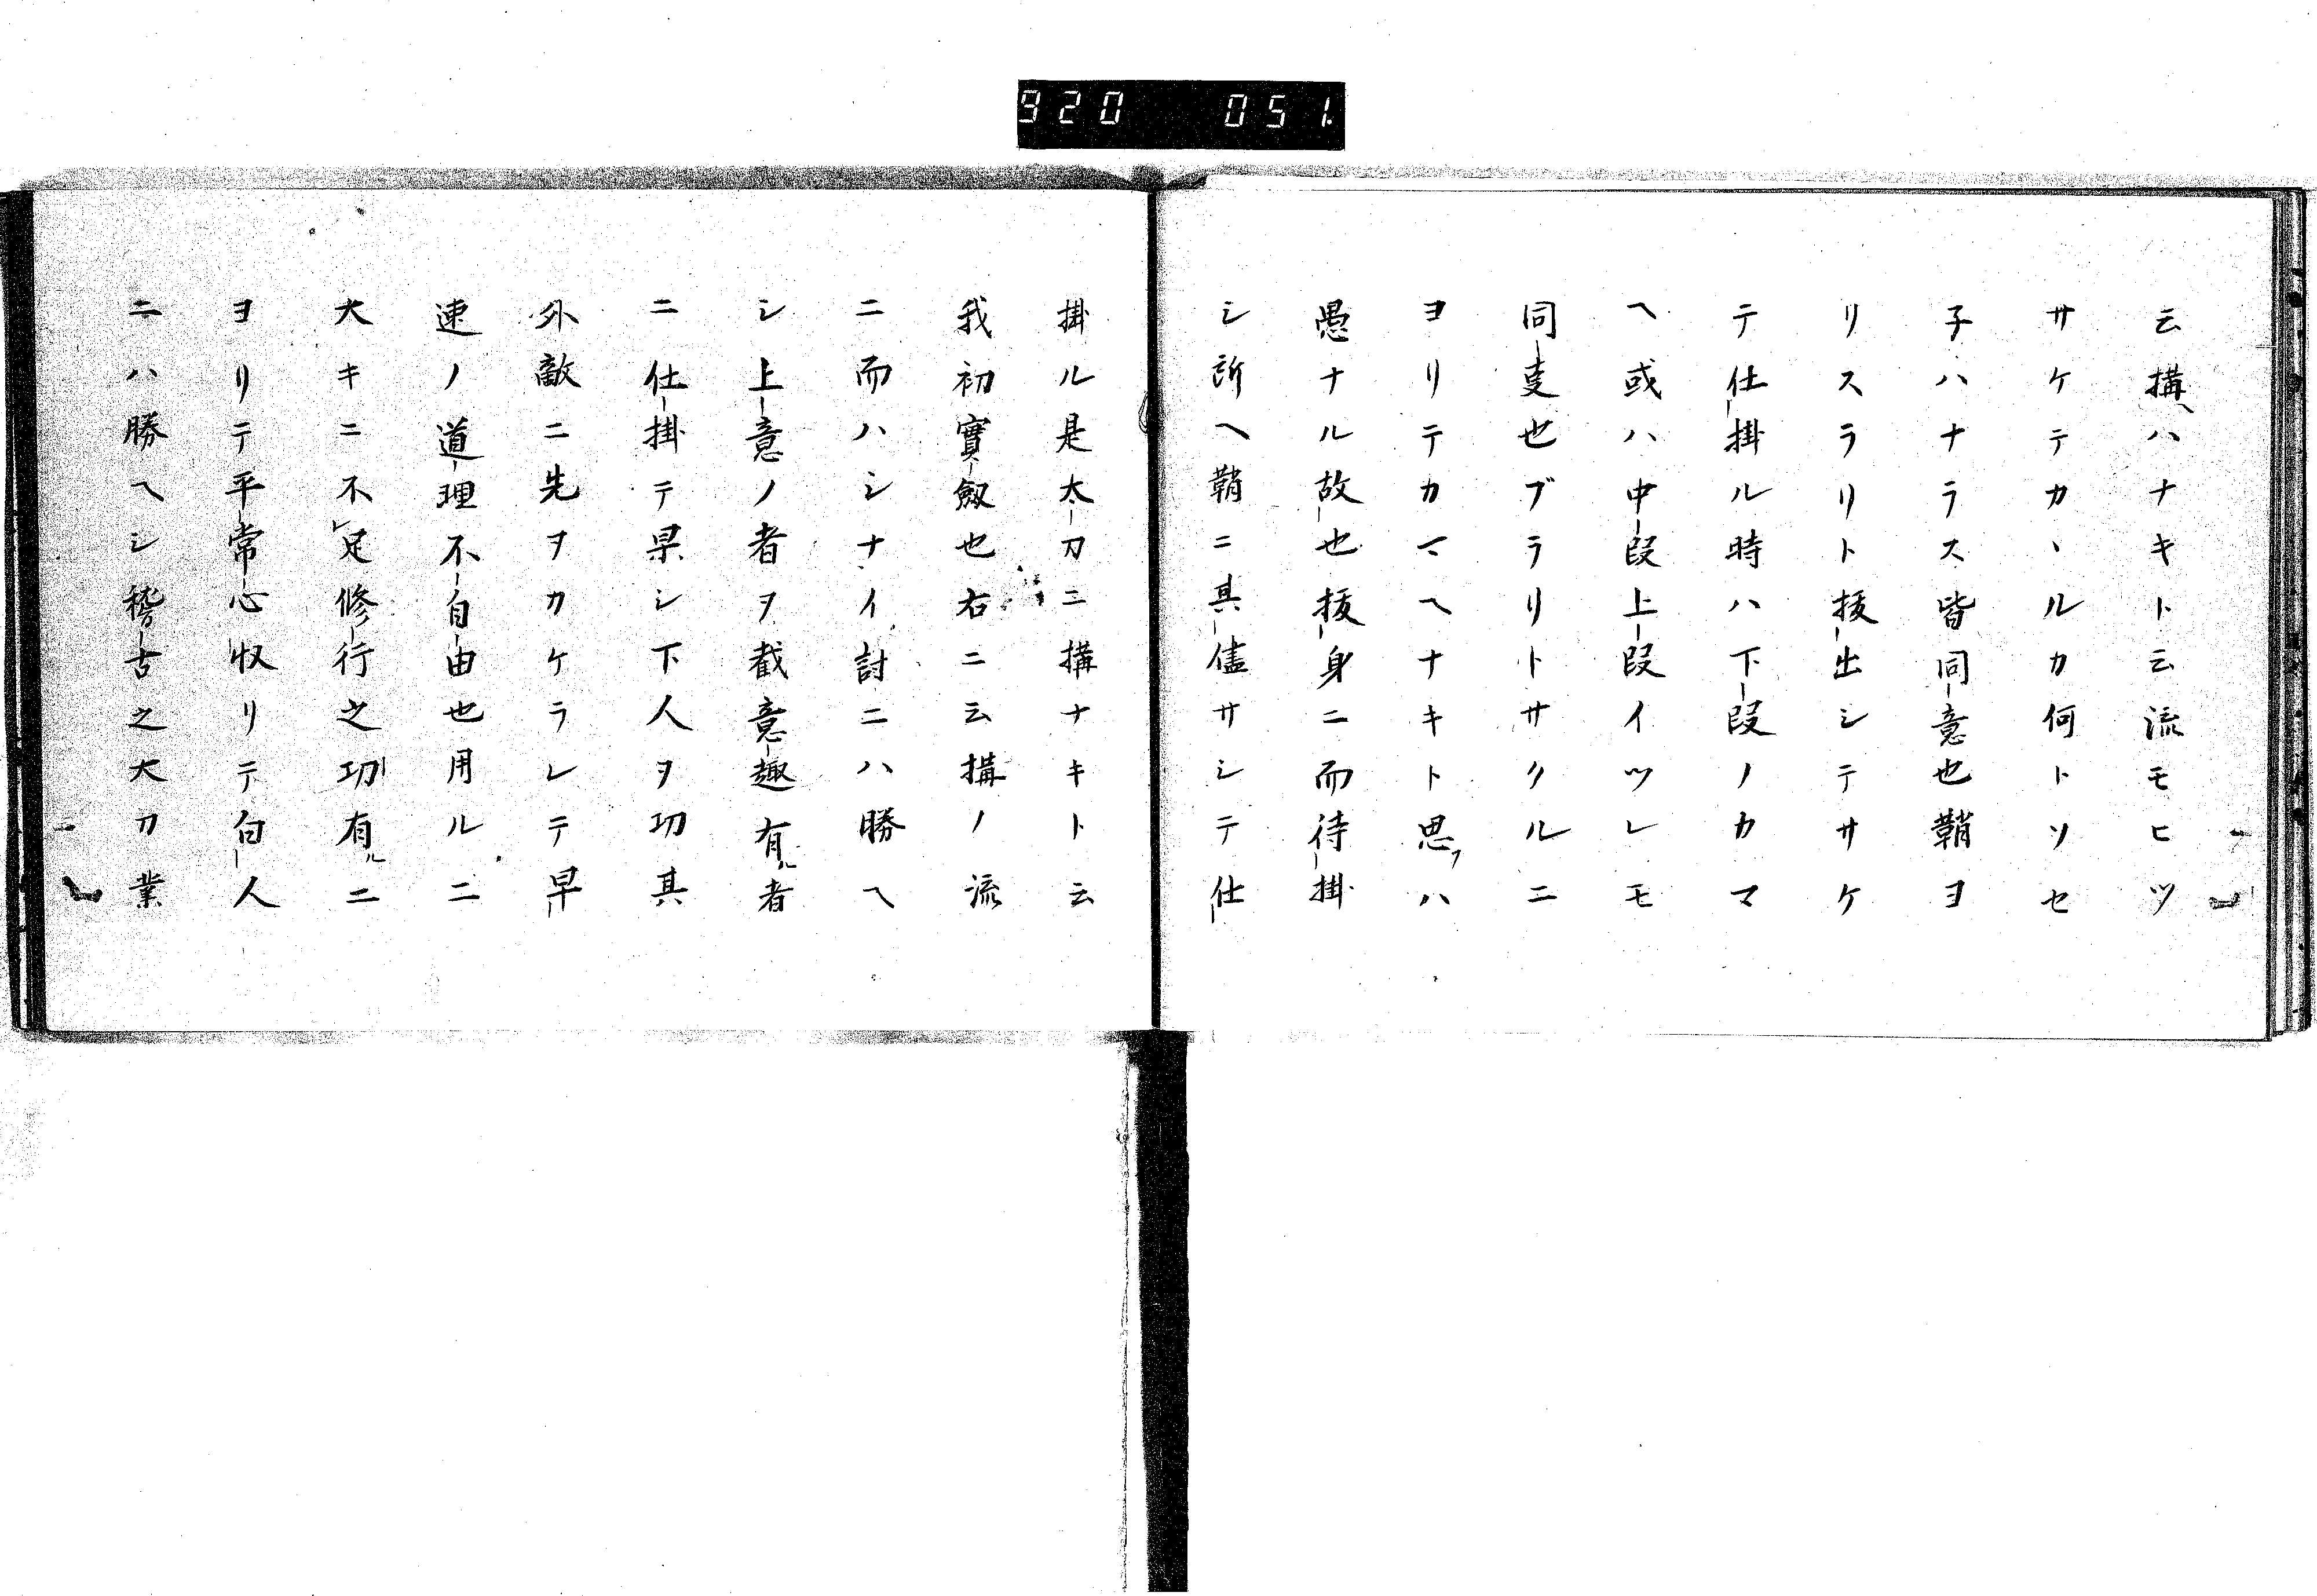 920 051
云搆ヘハナキト云流モヒツ
サケテカヽルカ何トソセ
子ハナラス皆同意也鞘ヨ
リスラリト抜出シテサケ
テ仕掛ル時ハ下段ノカマ
ヘ或ハ中段上段イツレモ
同叓也ブラリトサクルニ
ヨリテカマヘナキト思フハ
愚ナル故也抜身ニ而待掛
シ所ヘ鞘ニ其儘サシテ仕
掛ル是太刀ニ搆ナキト云
我初實劔也右ニ云搆ノ流
ニ而ハシナイ討ニハ勝ヘ
シ上意ノ者ヲ截意趣有ル者
ニ仕掛テ果シ下人ヲ切其
外敵ニ先ヲカケラレテ早
速ノ道理不自由也用ルニ
大キニ不足修行之功有ルニ
ヨリテ平常心収リテ白人
ニハ勝ヘシ稽古之大刀業